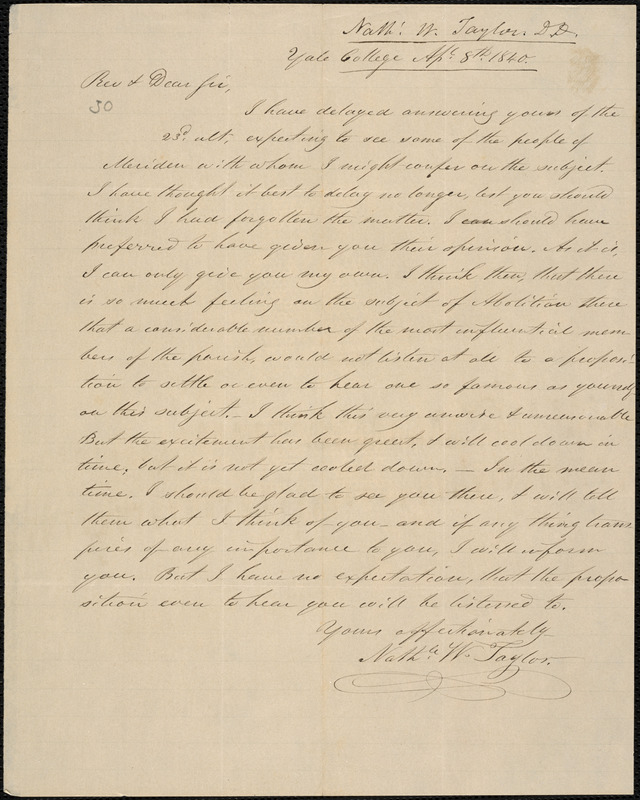 Nathl. W. Taylor. D.D.
Yale College Apl. 8th. 1840.
Rev & Dear Sir,
50
I have delayed answering yours of the
23d. ult, expecting to see some of the people of
Meriden with whom I might confer on the subject.
I have thought it best to delay no longer, lest you should
think I had forgotten the matter. I can should have
preferred to have given you their opinion. As it is,
I can only give you my own. I think then, that there
is so much feeling on the subject of Abolition there
that a considerable number of the most influential mem-
bers of the parish, would not listen at all to a proposi-
tion to settle or even to hear one so famous as yourself
on this subject. — I think this very unwise & unreasonable
But the excitement has been great, & will cool down in
time; but it is not yet cooled down. — In the mean
time, I should be glad to see you there, & will tell
them what I think of you — and if any thing trans-
pires of any importance to you, I will inform
you. But I have no expectation, that the propo-
sition even to hear you will be listened to.
Yours affectionately
Nathl. W. Taylor.